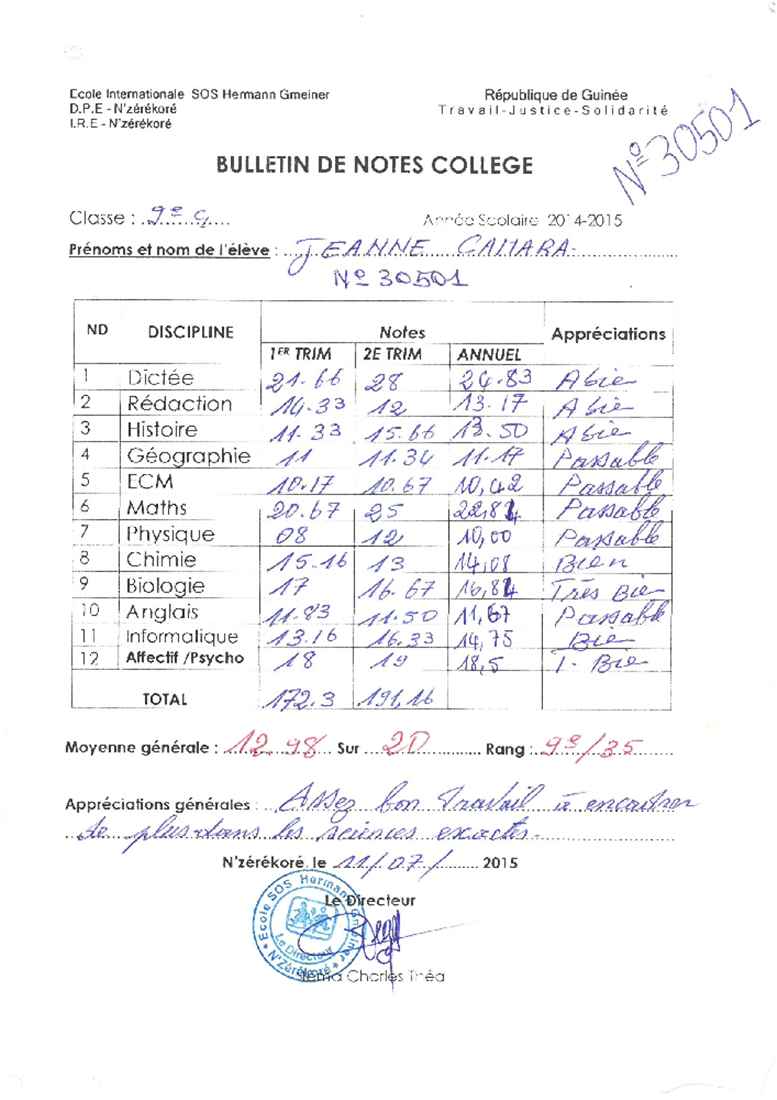 Ecole Internationale SOS Hermann Gmeiner
République de Guinée
D.P.E - N'zérékoré
Travail-Justice-Solidarité
I.R.E - N'zérékoré
Nº30501
BULLETIN DE NOTES COLLEGE
Classe : 9e G
Année Scolaire 2014-2015
Prénoms et nom de l'élève : JEANNE CAMARA
Nº 30501
ND DISCIPLINE Notes Appréciations
1ER TRIM 2E TRIM ANNUEL
1 Dictée 21.66 28 24.83 A bien
2 Rédaction 14.33 12 13.17 A bien
3 Histoire 11.33 15.66 13.50 A bien
4 Géographie 11 11.34 11.17 Passable
5 ECM 10.17 10.67 10,42 Passable
6 Maths 20.67 25 22,84 Passable
7 Physique 08 12 10,00 Passable
8 Chimie 15.16 13 14,08 Bien
9 Biologie 17 16.67 16,84 Très Bien
10 Anglais 11.83 11.50 11,67 Passable
11 Informatique 13.16 16.33 14,75 Bien
12 Affectif /Psycho 18 19 18,5 T. Bien
TOTAL 172.3 191,16
Moyenne générale : 12.98 Sur 20 Rang : 9e/35
Appréciations générales : Assez bon travail à
de plus dans les sciences exactes.
N'zérékoré, le 11/07/ 2015
Le Directeur
Ecole SOS Hermann Gmeiner
Le Directeur
N'Zérékoré
Charles Théa